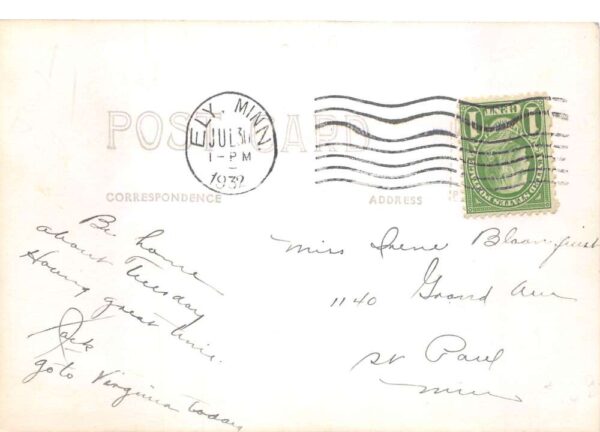 POST CARD
ELY MINN
JUL 30
1-PM
1932
CORRESPONDENCE
ADDRESS
1 1
UNITED STATES POSTAGE
Be home
about Tuesday
Having great time.
Jack
go to Virginia today
Miss Irene Bloomquist
1140 Grand Ave
St Paul
Minn